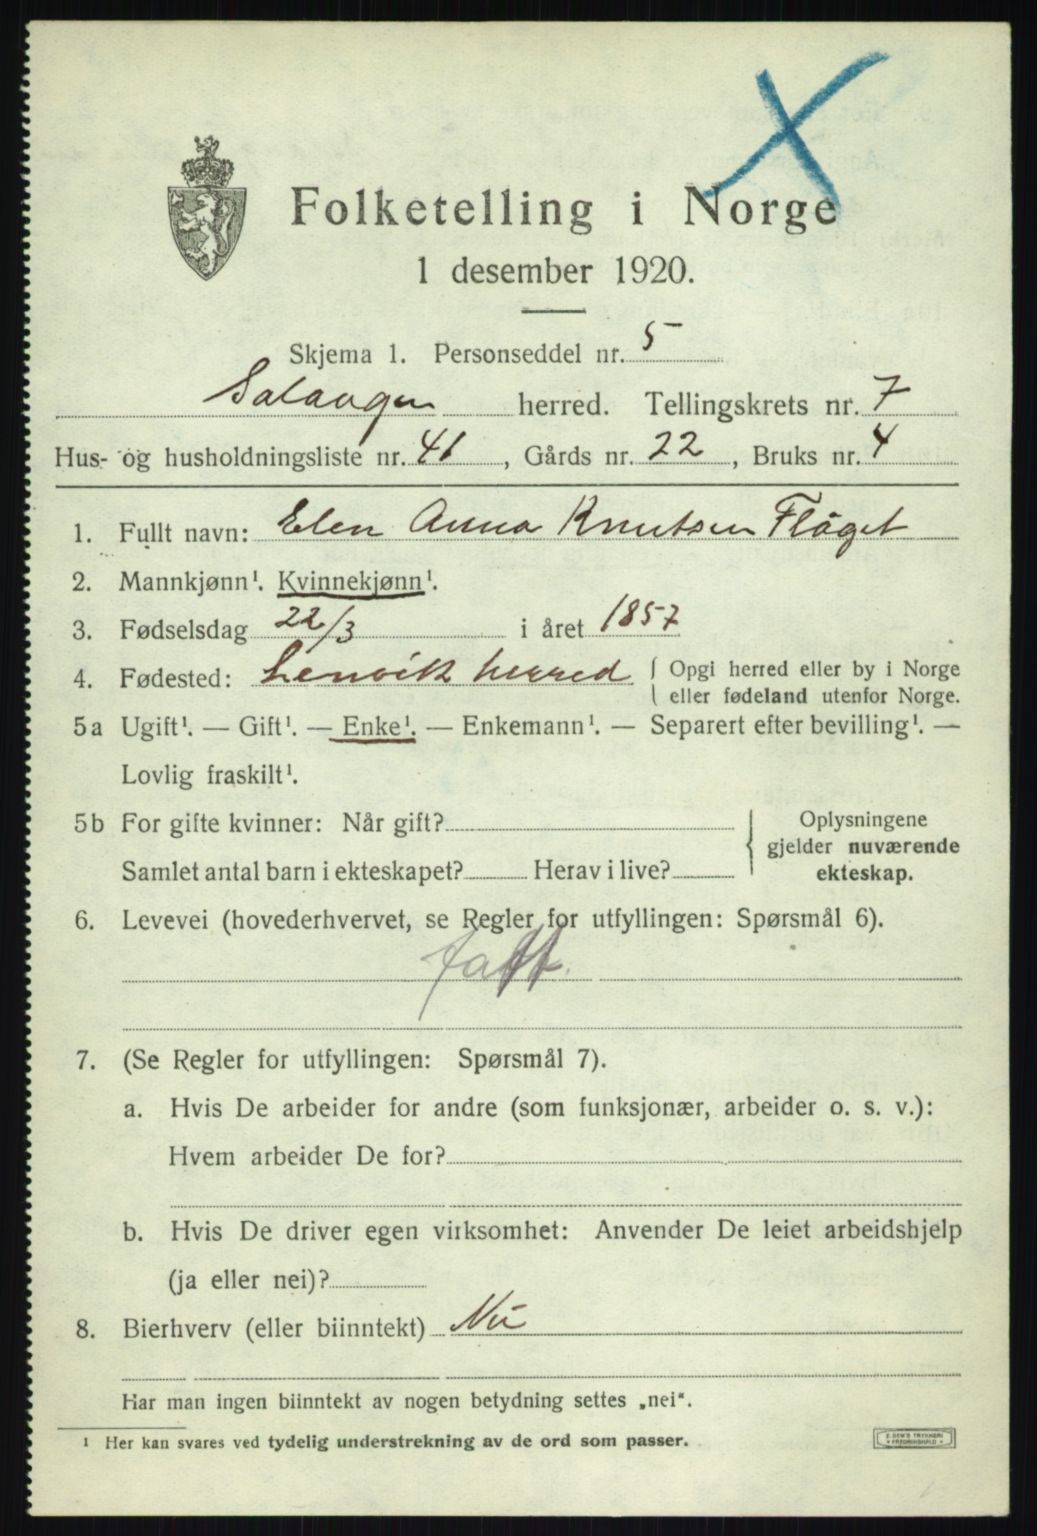 Folketelling i Norge
1 desember 1920.
Skjema 1. Personseddel nr. 5
Salangen herred. Tellingskrets nr. 7
Hus- og husholdningsliste nr. 41, Gårds nr. 22, Bruks nr. 4
1. Fullt navn: Elen Anna Knutsen Flåget
2. Mannkjønn¹. Kvinnekjønn¹.
3. Fødselsdag 22/3 i året 1857
4. Fødested: Lenvik herred { Opgi herred eller by i Norge
eller fødeland utenfor Norge.
5a Ugift¹. — Gift¹. — Enke¹. — Enkemann¹. — Separert efter bevilling¹. —
Lovlig fraskilt¹.
5b For gifte kvinner: Når gift?
Samlet antal barn i ekteskapet? Herav i live?
Oplysningene
gjelder nuværende
ekteskap.
6. Levevei (hovederhvervet, se Regler for utfyllingen: Spørsmål 6).
fatt.
7. (Se Regler for utfyllingen: Spørsmål 7).
a. Hvis De arbeider for andre (som funksjonær, arbeider o. s. v.):
Hvem arbeider De for?
b. Hvis De driver egen virksomhet: Anvender De leiet arbeidshjelp
(ja eller nei)?
8. Bierhverv (eller biinntekt) Nei
Har man ingen biinntekt av nogen betydning settes „nei".
¹ Her kan svares ved tydelig understrekning av de ord som passer.